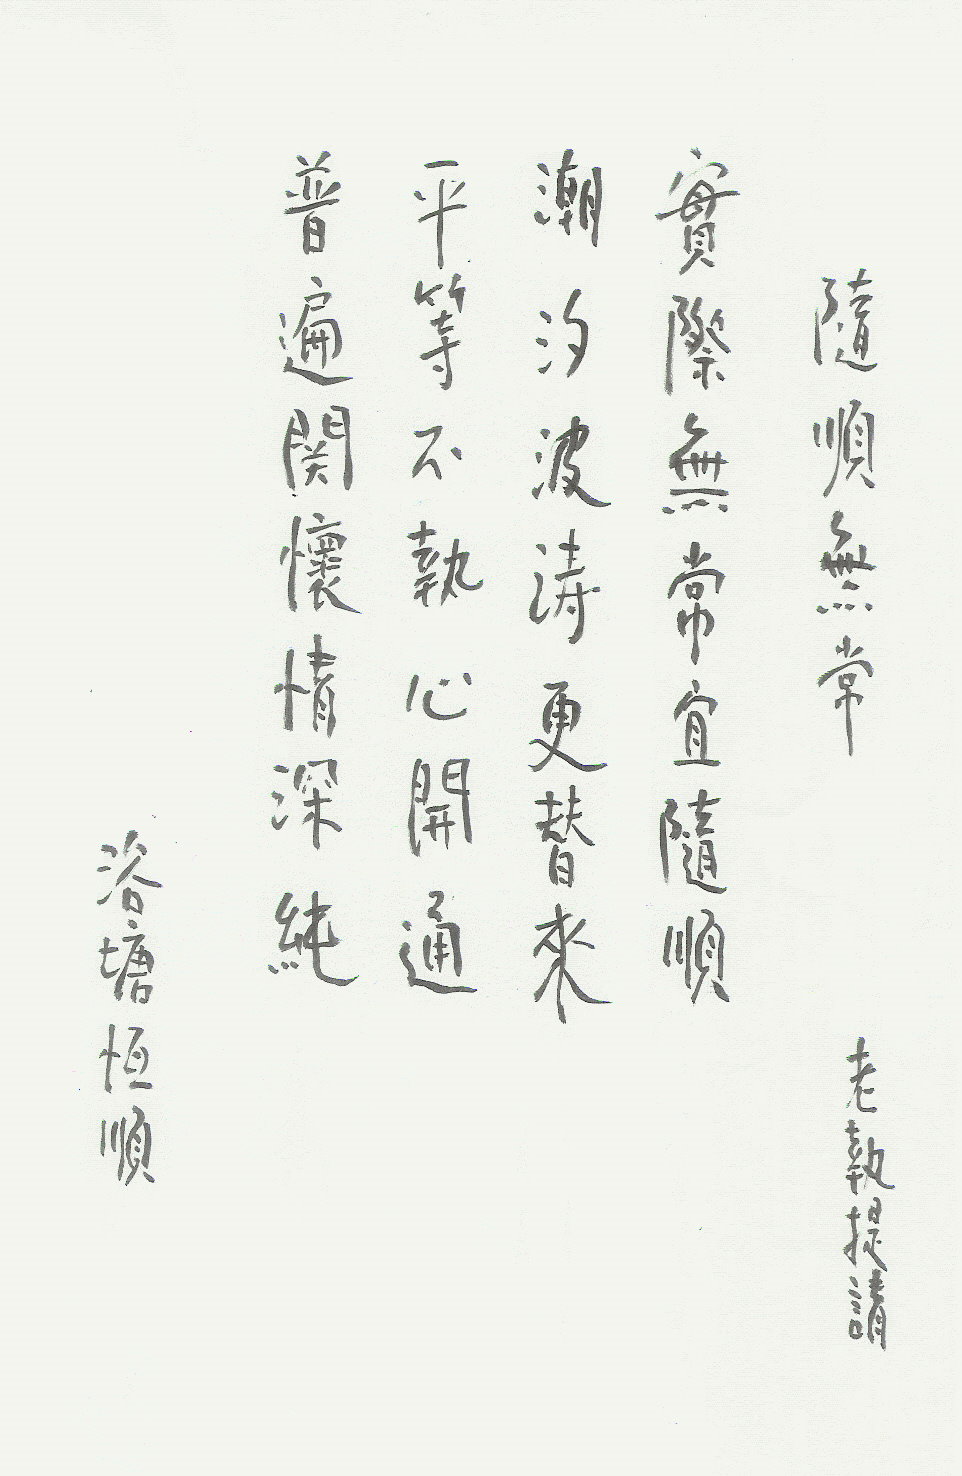 隨順無常
老執提請
實際無常宜隨順
潮汐波涛更替來
平等不執心開通
普遍関懷情深純
浴塘恒順